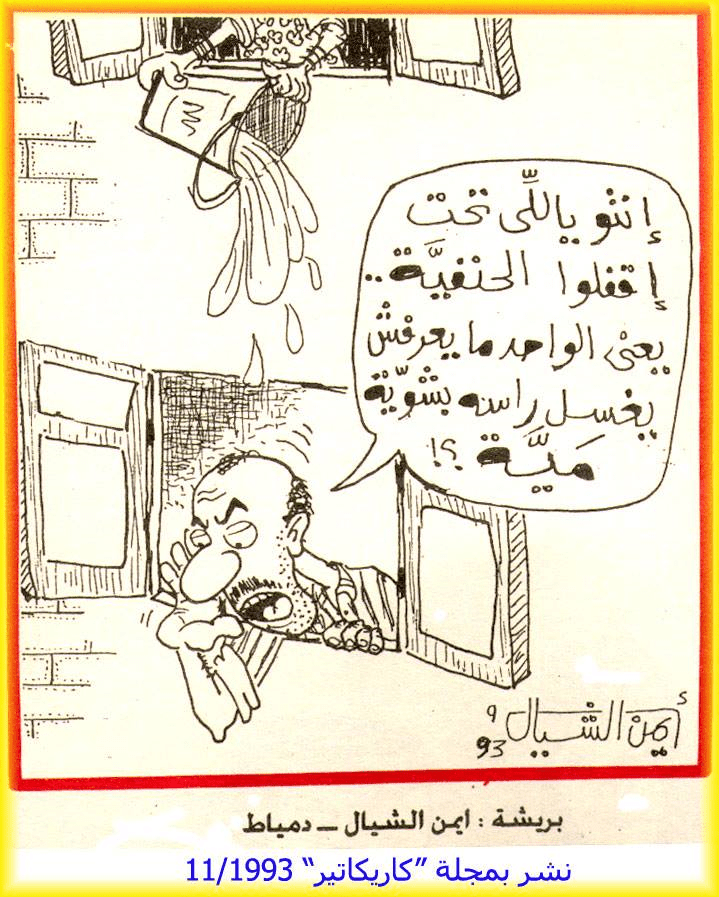 إنتو ياللّى تحت
إقفلوا الحنفيَّة ..
يعنى الواحد ما يعرفش
يغسل راسه بشويّة
مَيَّة ؟!
أيمن الشيال
9
93
بريشة : ايمن الشيال – دمياط
نشر بمجلة ”كاريكاتير“ 11/1993